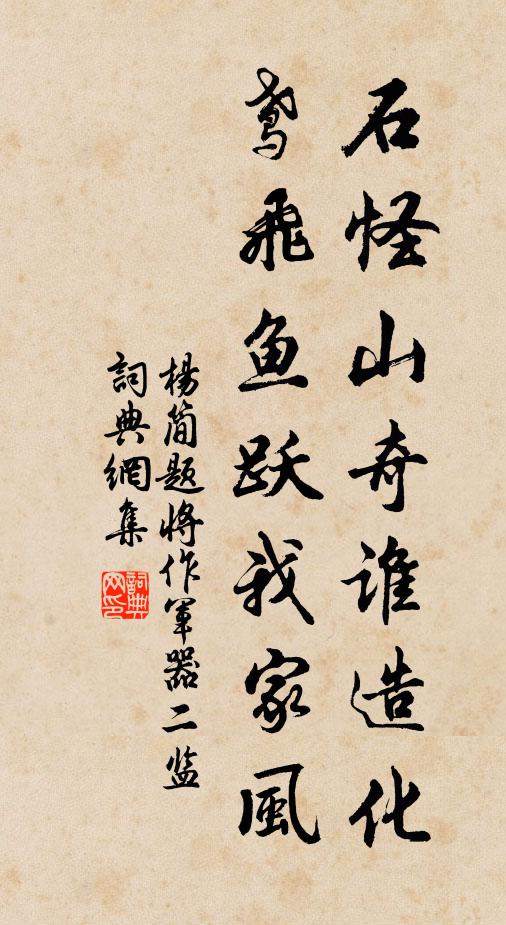 石怪山奇谁造化
鸢飛鱼跃我家風
楊简题将作軍器二监
詞典網集
詞典网印